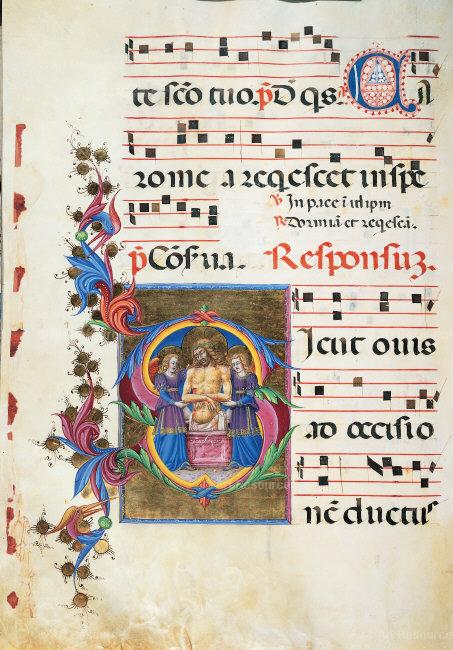 te scō tuo. p̄ D̄ qs. Ca
ro me a reqescet in spe
℣ In pace ī idipm
℟ Dormiā et reqescā.
p̄ Cōs̄ua. Responsuz.
Sicut ouis
ad occisio
nē ductus